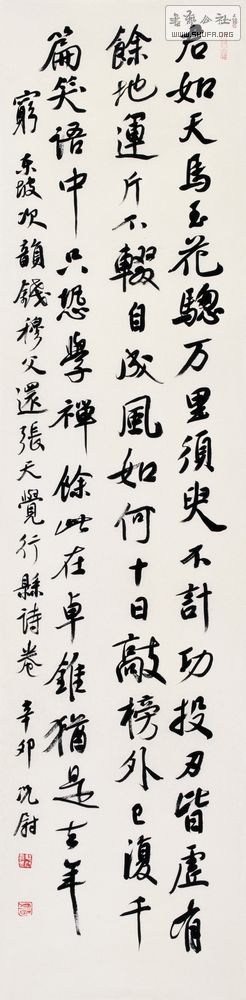 君如天馬玉花驄万里須臾不計功投刃皆虛有
餘地運斤不輟自成風如何十日敲榜外已復千
篇笑语中只恐學禪餘此在卓錐猶是去年
窮 东坡次韻錢穆父還張天覺行縣詩卷 辛卯
WWW.SHUFA.ORG